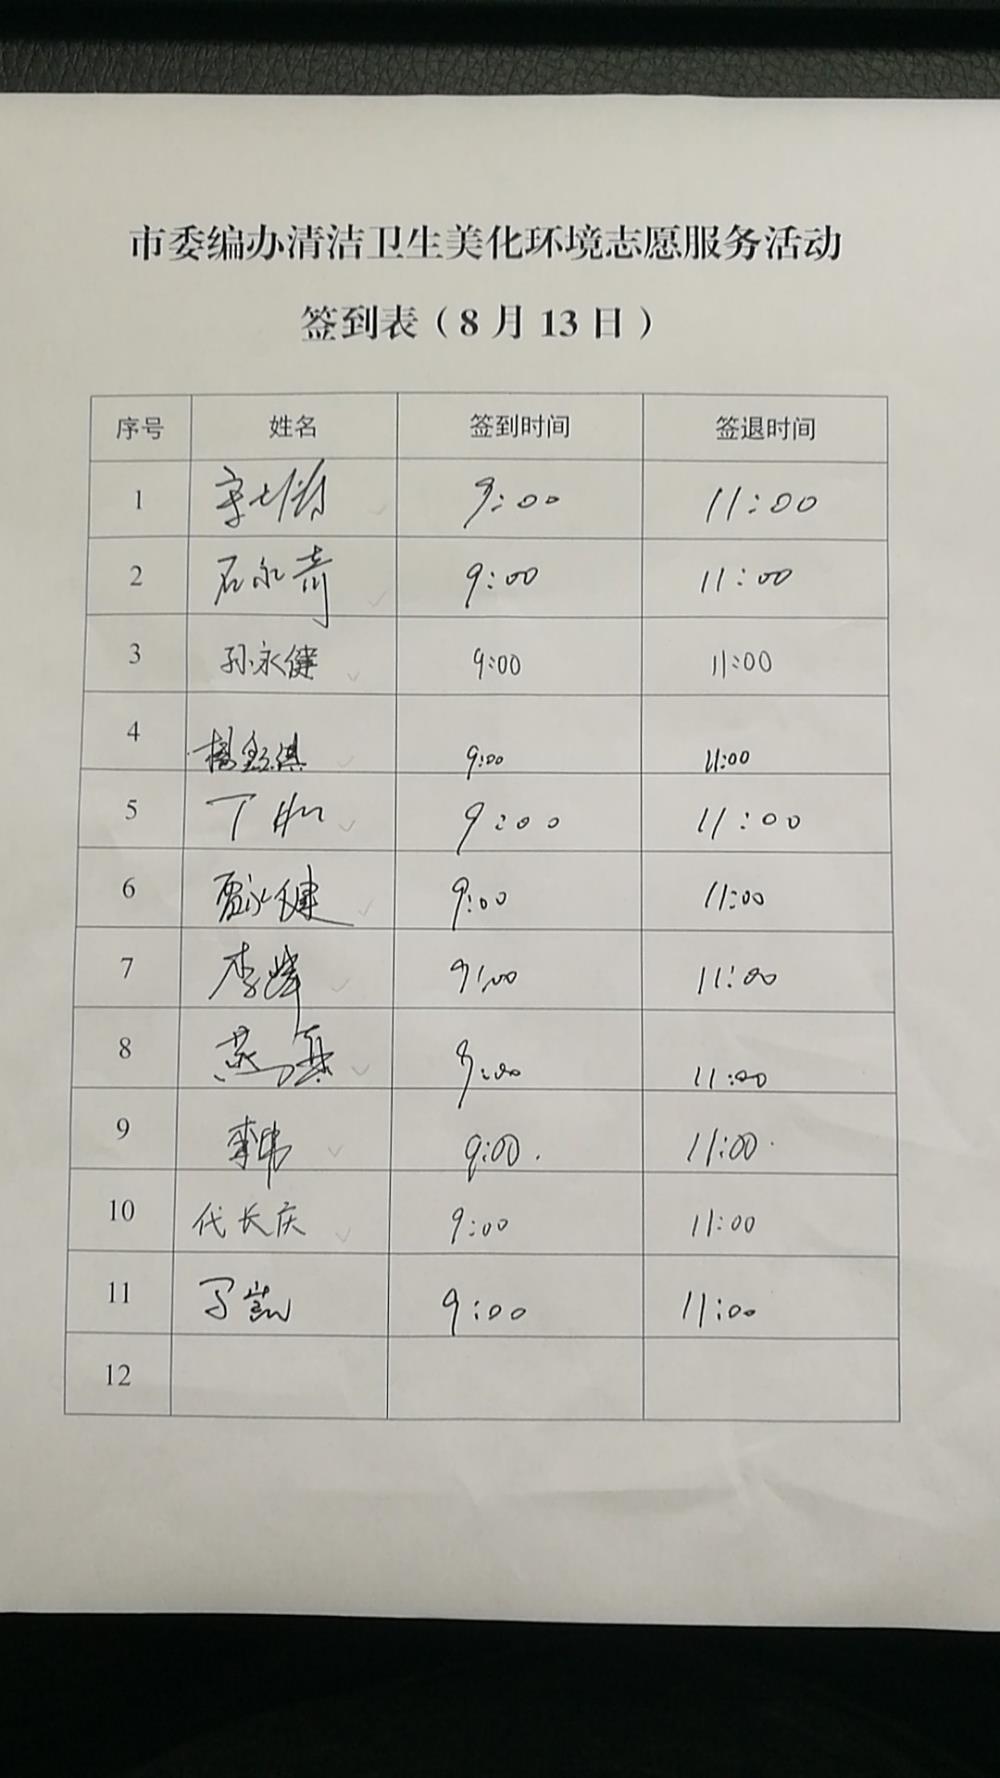 市委编办清洁卫生美化环境志愿服务活动
签到表（8月13日）
序号 姓名 签到时间 签退时间
1 9:00 11:00
2 石永青 9:00 11:00
3 孙永健 9:00 11:00
4 9:00 11:00
5 丁 9:00 11:00
6 贾永健 9:00 11:00
7 李峰 9:00 11:00
8 9:00 11:00
9 李伟 9:00. 11:00
10 代长庆 9:00 11:00
11 凯 9:00 11:00
12